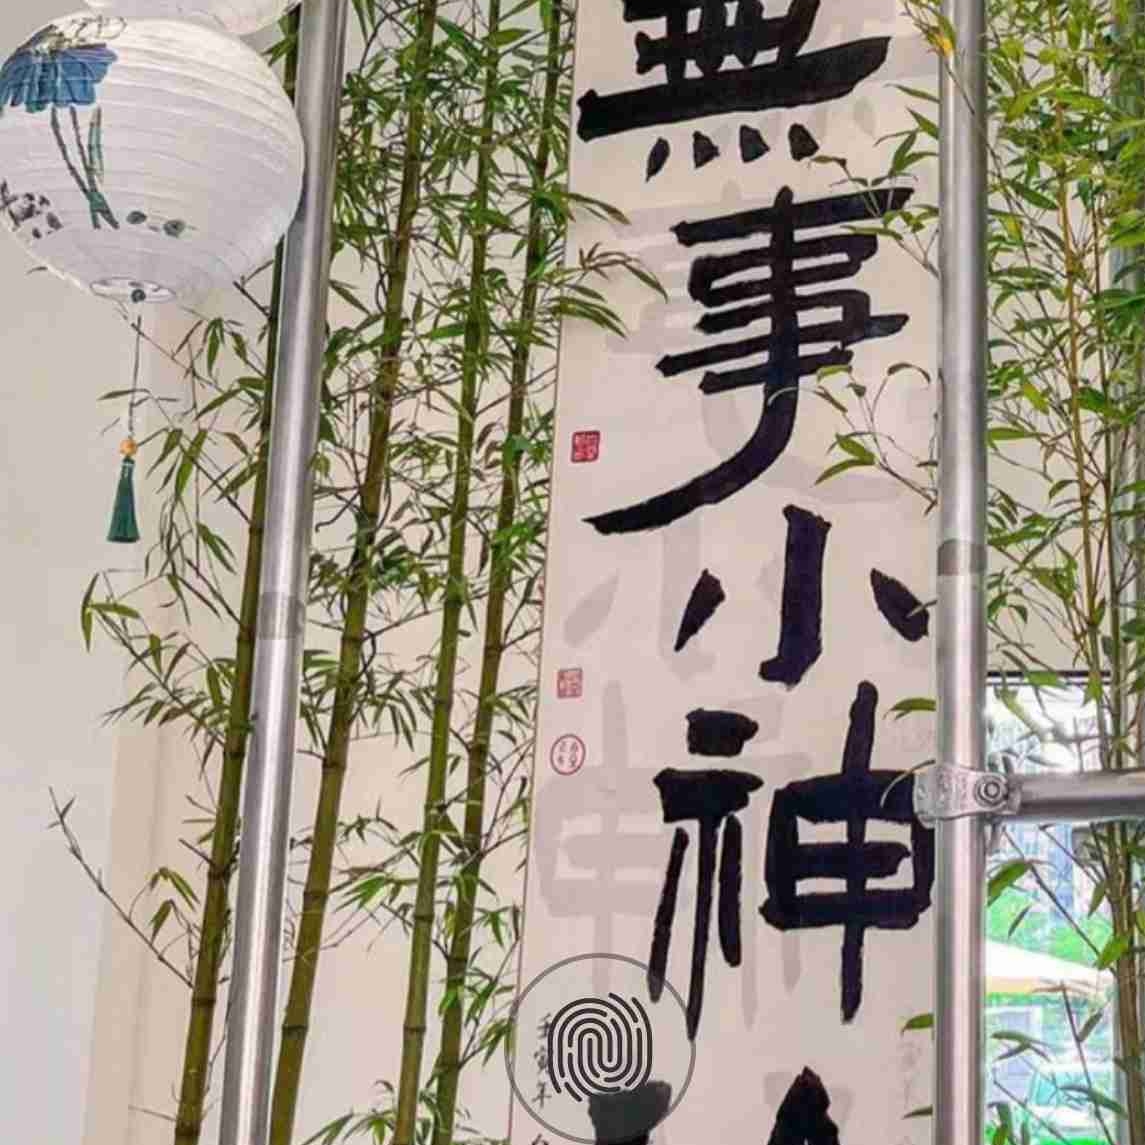 無事小神
壬寅年